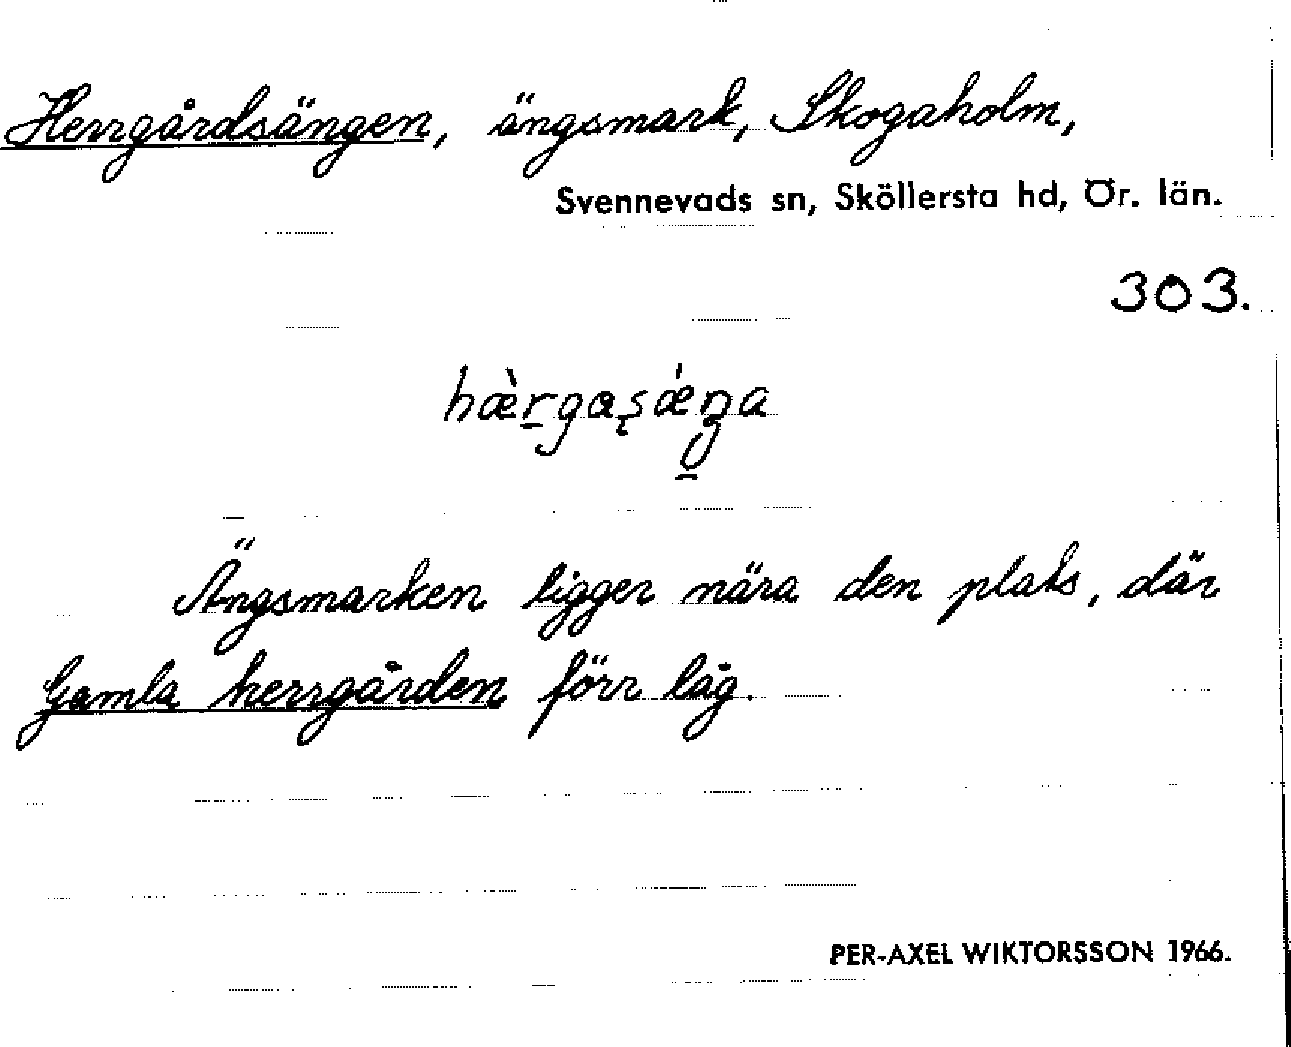 Herrgårdsängen, ängsmark, Skogaholm,
Svennevads sn, Sköllersta hd, Ör. län.
303.
hæ̀r̠gaʂǽŋa
Ängsmarken ligger nära den plats, där
Gamla herrgården förr låg.
PER-AXEL WIKTORSSON 1966.